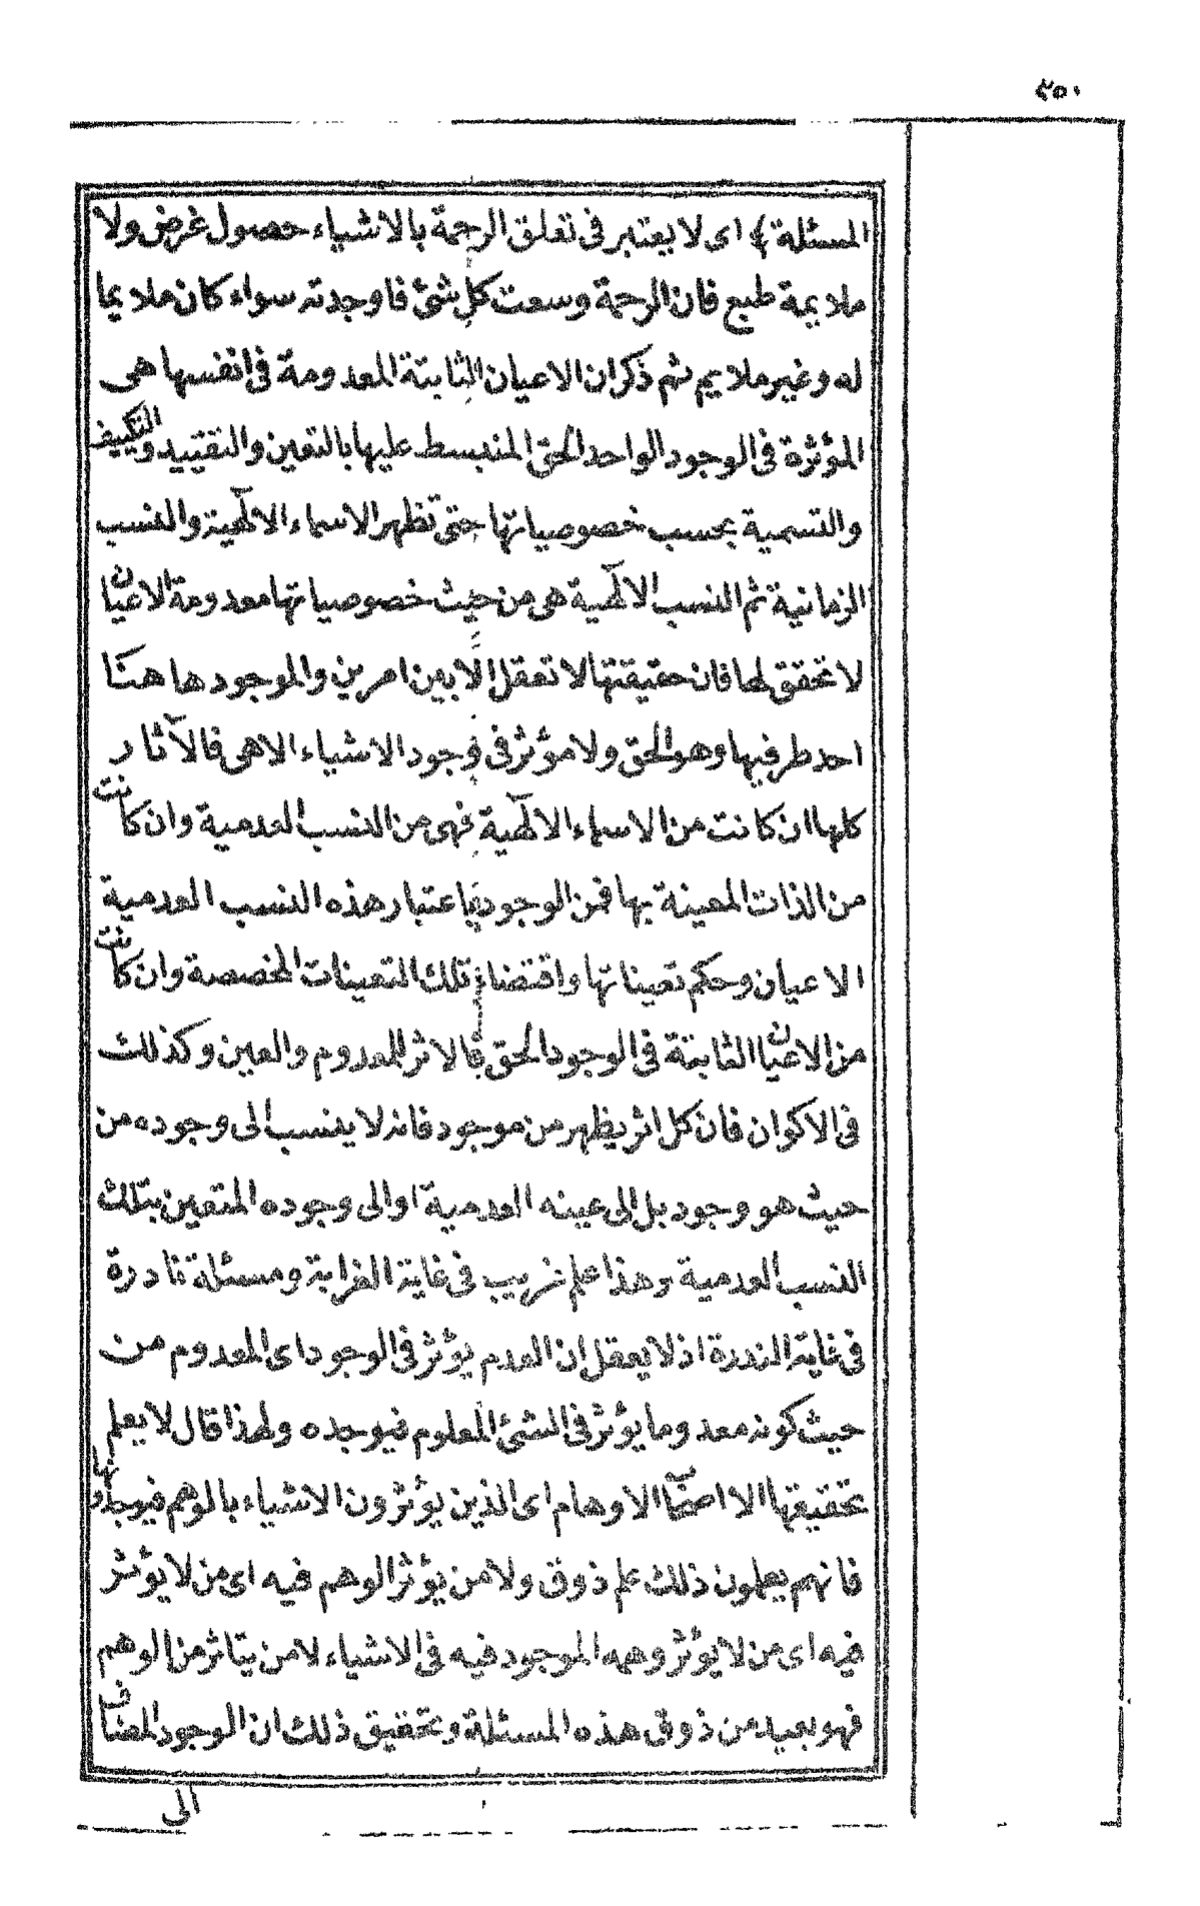 ٤٥٠
المسئلة ﴾ اى لا يعتبر فى تعلق الرحمة بالاشياء حصول غرض ولا
ملايمة طبع فان الرحمة وسعت كل شئ فاوجدته سواء كان ملايما
له وغير ملايم ثم ذكر ان الاعيان الثابتة المعدومة فى انفسها هى
المؤثرة فى الوجود الواحد الحق المنبسط عليها بالتعين والتقييد والتكييف
والتسمية بحسب خصوصياتها حتى تظهر الاسماء الالهية والنسب
الزمانية ثم النسب الالهية هى من حيث خصوصياتها معدومة الاعيان
لا تحقق لها فان حقيقتها لا تعقل الا بين امرين والموجود ها هنا
احد طرفيها وهو الحق ولا مؤثر فى وجود الاشياء الا هى فالآثار
كلها ان كانت من الاسماء الالهية فهى من النسب العدمية وان كانت
من الذات المعينة بها فمن الوجود باعتبار هذه النسب العدمية
الاعيان وحكم تعيناتها واقتضاء تلك التعينات المخصصة وان كانت
من الاعيان الثابتة فى الوجود الحق فالاثر للمعدوم والعين وكذلك
فى الاكوان فان كل اثر يظهر من موجود فانه لا ينسب الى وجوده من
حيث هو وجود بل الى عينه العدمية او الى وجوده المتعين بتلك
النسب العدمية وهذا علم غريب فى غاية الغرابة ومسئلة نادرة
فى غاية الندرة اذ لا يعقل ان العدم يؤثر فى الوجود اى المعدوم من
حيث كونه معدوما يؤثر فى الشئ المعلوم فيوجده ولهذا قال لا يعلم
تحقيقها الا اصحاب الاوهام اى الذين يؤثرون الاشياء بالوهم فيوجدونها
فانهم يعلمون ذلك علم ذوق ولا من يؤثر الوهم فيه اى من لا يؤثر
فيه اى من لا يؤثر وهمه الموجود فيه فى الاشياء لا من يتاثر من الوهم
فهو بعيد من ذوق هذه المسئلة وتحقيق ذلك ان الوجود المضاف
الى